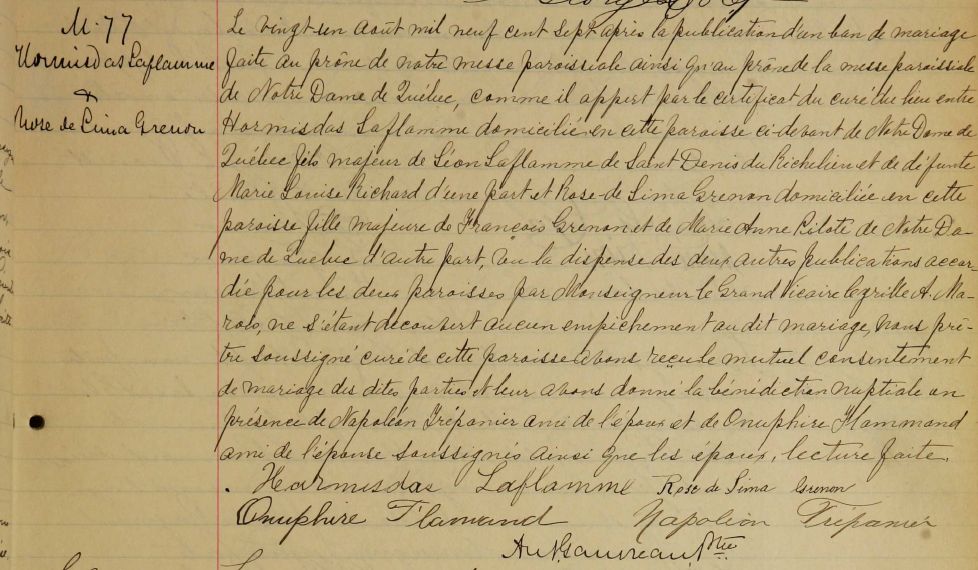 M. 77
Hormisdas Laflamme
&
Rose de Lima Grenon
Le vingt-un août mil neuf cent sept après la publication d'un ban de mariage
faite au prône de notre messe paroissiale ainsi qu'au prône de la messe paroissiale
de Notre Dame de Québec, comme il appert par le certificat du curé du lieu entre
Hormisdas Laflamme domicilié en cette paroisse ci-devant de Notre Dame de
Québec fils majeur de Léon Laflamme de Saint Denis du Richelieu et de défunte
Marie Louise Richard d'une part et Rose-de Lima Grenon domiciliée en cette
paroisse fille majeure de François Grenon et de Marie Anne Pilote de Notre Da-
me de Québec d'autre part, vu la dispense des deux autres publications accor-
dée pour les deux paroisses par Monseigneur le Grand Vicaire C. A. Ma-
rois, ne s'étant découvert aucun empêchement au dit mariage, nous prê-
tre soussigné curé de cette paroisse avons reçu le mutuel consentement
de mariage des dites parties et leur avons donné la bénédiction nuptiale en
présence de Napoléon Trépanier ami de l'époux et de Onuphire Flammand
ami de l'épouse soussignés ainsi que les époux, lecture faite.
Harmisdas Laflamme Rose de Lima Grenon
Onuphire Flamand Napoléon Trépanier
Gauvreau Ptre